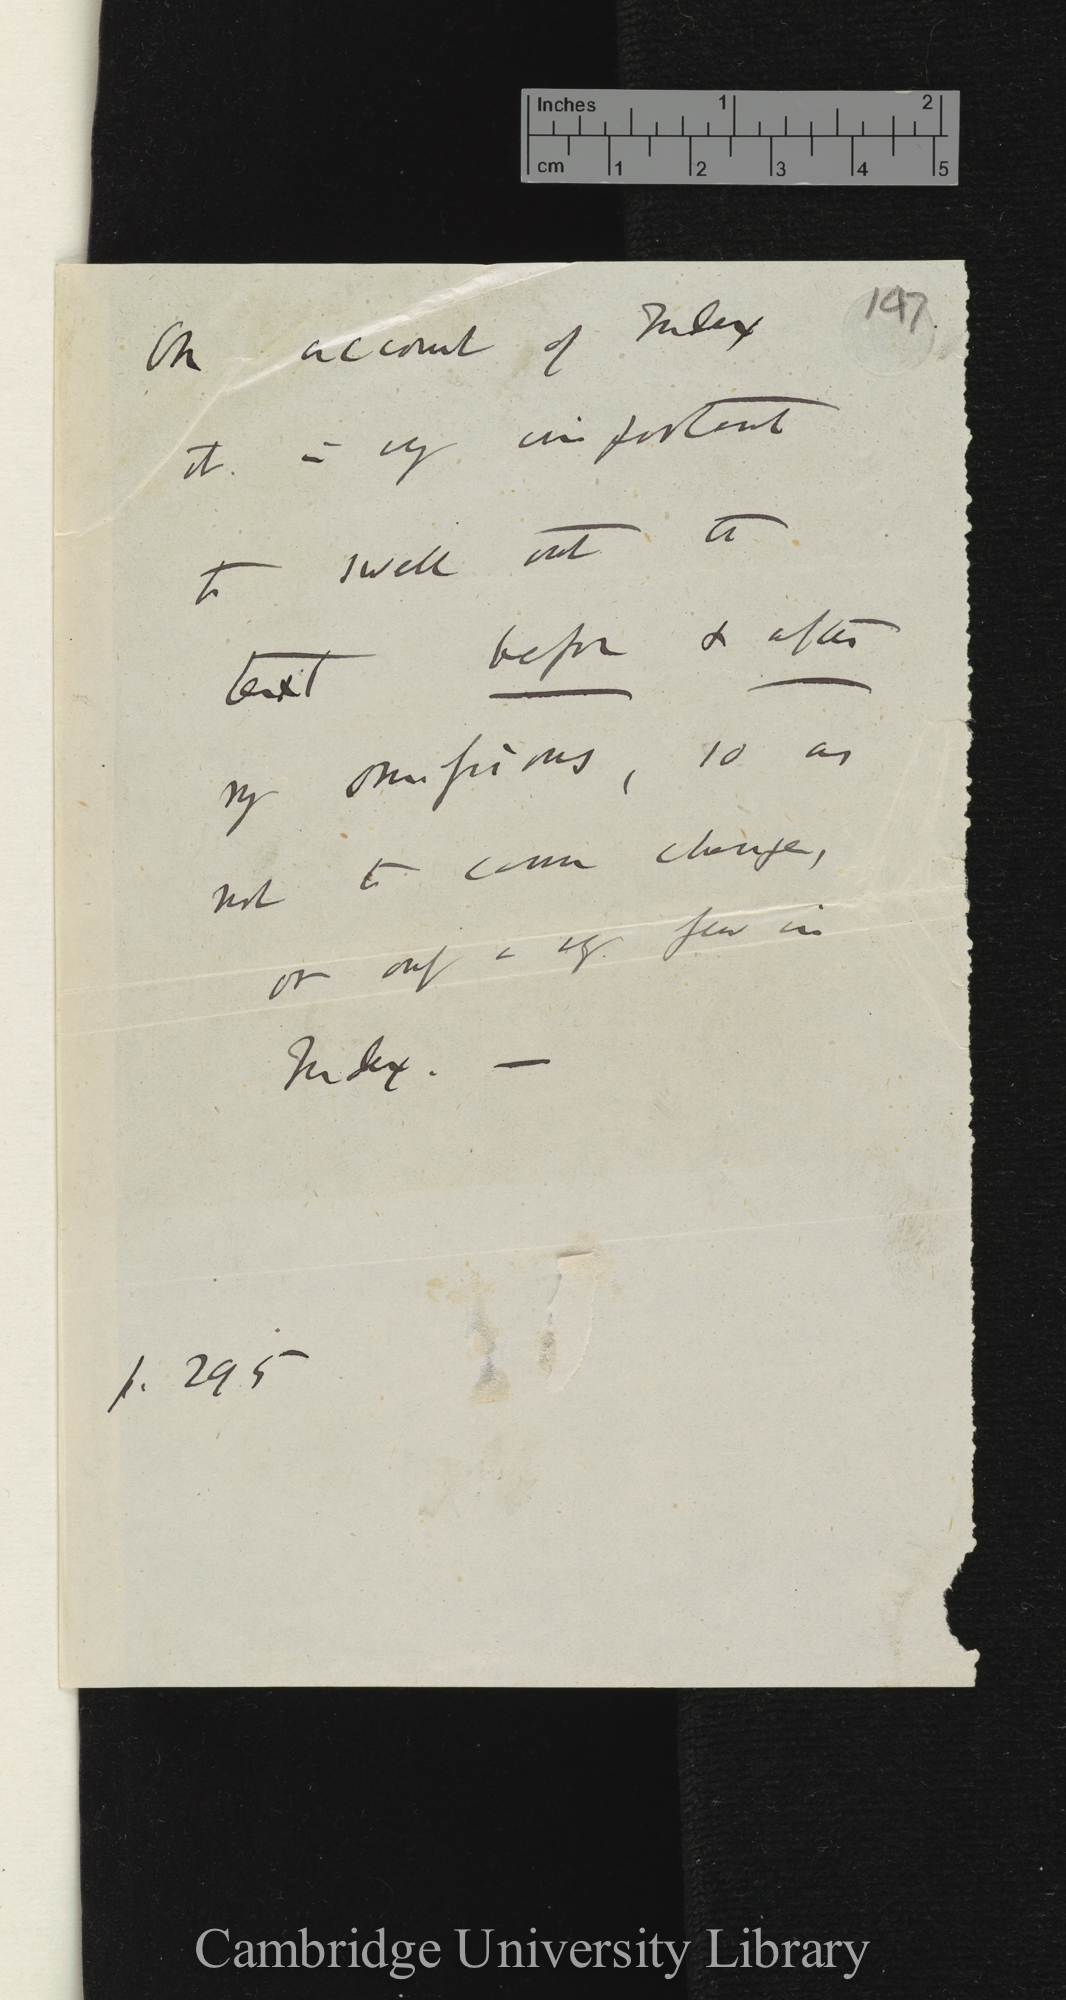 Inches 1 2
cm 1 2 3 4 5
147
On account of Index
it. is vy important
to swell out the
text before & after
my omissions, so as
not to cause change,
or only a vy. few in
Index. —
p. 295
Cambridge University Library